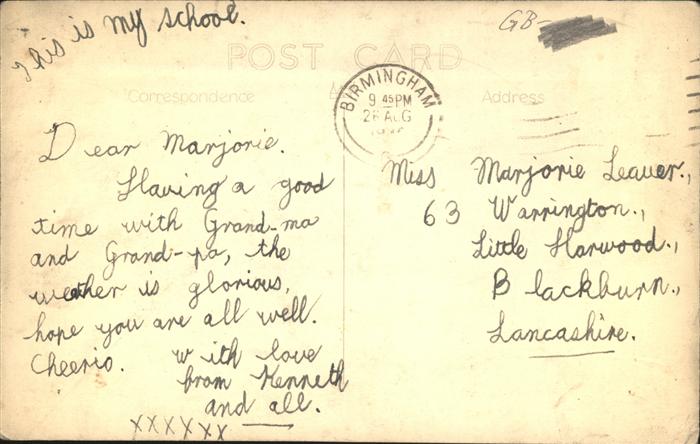 This is my school.
GB-
POST CARD
Correspondence
Address
BIRMINGHAM
9 45PM
26 AUG
Dear Marjorie.
Having a good
time with Grand-ma
and Grand-pa, the
weather is glorious,
hope you are all well.
Cheerio. with love
from Kenneth
and all.
xxxxxx
Miss Marjorie Leaver.,
63 Warrington.,
Little Harwood.,
Blackburn.,
Lancashire.